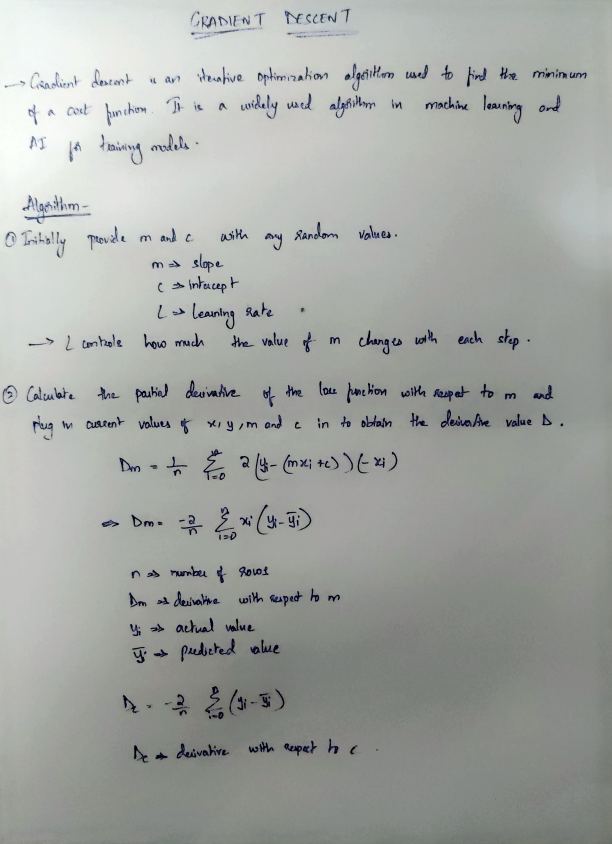 GRADIENT DESCENT
→ Gradient descent is an iterative optimization algorithm used to find the minimum
of a cost function. It is a widely used algorithm in machine learning and
AI for training models.
Algorithm-
① Initially provide m and c with any random values.
m ⇒ slope
c ⇒ intercept
L ⇒ Learning rate
→ L controls how much the value of m changes with each step.
② Calculate the partial derivative of the loss function with respect to m and
plug in current values of x, y, m and c in to obtain the derivative value D.
Dm = 1/n Σ i=0 n 2(yi - (mxi + c))(-xi)
⇒ Dm = -2/n Σ i=0 n xi(yi - ȳi)
n ⇒ number of rows
Dm ⇒ derivative with respect to m
yi ⇒ actual value
ȳi ⇒ predicted value
Dc = -2/n Σ i=0 n (yi - ȳi)
Dc ⇒ derivative with respect to c.